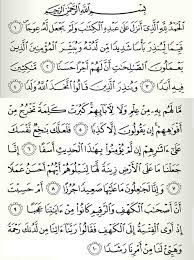 بِسْمِ اللَّهِ الرَّحْمَٰنِ الرَّحِيمِ
الْحَمْدُ لِلَّهِ الَّذِي أَنزَلَ عَلَىٰ عَبْدِهِ الْكِتَٰبَ وَلَمْ يَجْعَل لَّهُ عِوَجَا ۜ ١
قَيِّمًا لِّيُنذِرَ بَأْسًا شَدِيدًا مِّن لَّدُنْهُ وَيُبَشِّرَ الْمُؤْمِنِينَ الَّذِينَ
يَعْمَلُونَ الصَّٰلِحَٰتِ أَنَّ لَهُمْ أَجْرًا حَسَنًا ٢ مَّٰكِثِينَ
فِيهِ أَبَدًا ٣ وَيُنذِرَ الَّذِينَ قَالُوا اتَّخَذَ اللَّهُ وَلَدًا ٤
مَّا لَهُم بِهِ مِنْ عِلْمٍ وَلَا لِءَابَائِهِمْ كَبُرَتْ كَلِمَةً تَخْرُجُ مِنْ
أَفْوَٰهِهِمْ إِن يَقُولُونَ إِلَّا كَذِبًا ٥ فَلَعَلَّكَ بَٰخِعٌ نَّفْسَكَ
عَلَىٰ ءَاثَٰرِهِمْ إِن لَّمْ يُؤْمِنُوا بِهَٰذَا الْحَدِيثِ أَسَفًا ٦ إِنَّا جَعَلْنَا
مَا عَلَى الْأَرْضِ زِينَةً لَّهَا لِنَبْلُوَهُمْ أَيُّهُمْ أَحْسَنُ عَمَلًا
٧ وَإِنَّا لَجَٰعِلُونَ مَا عَلَيْهَا صَعِيدًا جُرُزًا ٨ أَمْ حَسِبْتَ
أَنَّ أَصْحَٰبَ الْكَهْفِ وَالرَّقِيمِ كَانُوا مِنْ ءَايَٰتِنَا عَجَبًا ٩
إِذْ أَوَى الْفِتْيَةُ إِلَى الْكَهْفِ فَقَالُوا رَبَّنَا ءَاتِنَا مِن لَّدُنكَ رَحْمَةً
وَهَيِّئْ لَنَا مِنْ أَمْرِنَا رَشَدًا ١٠